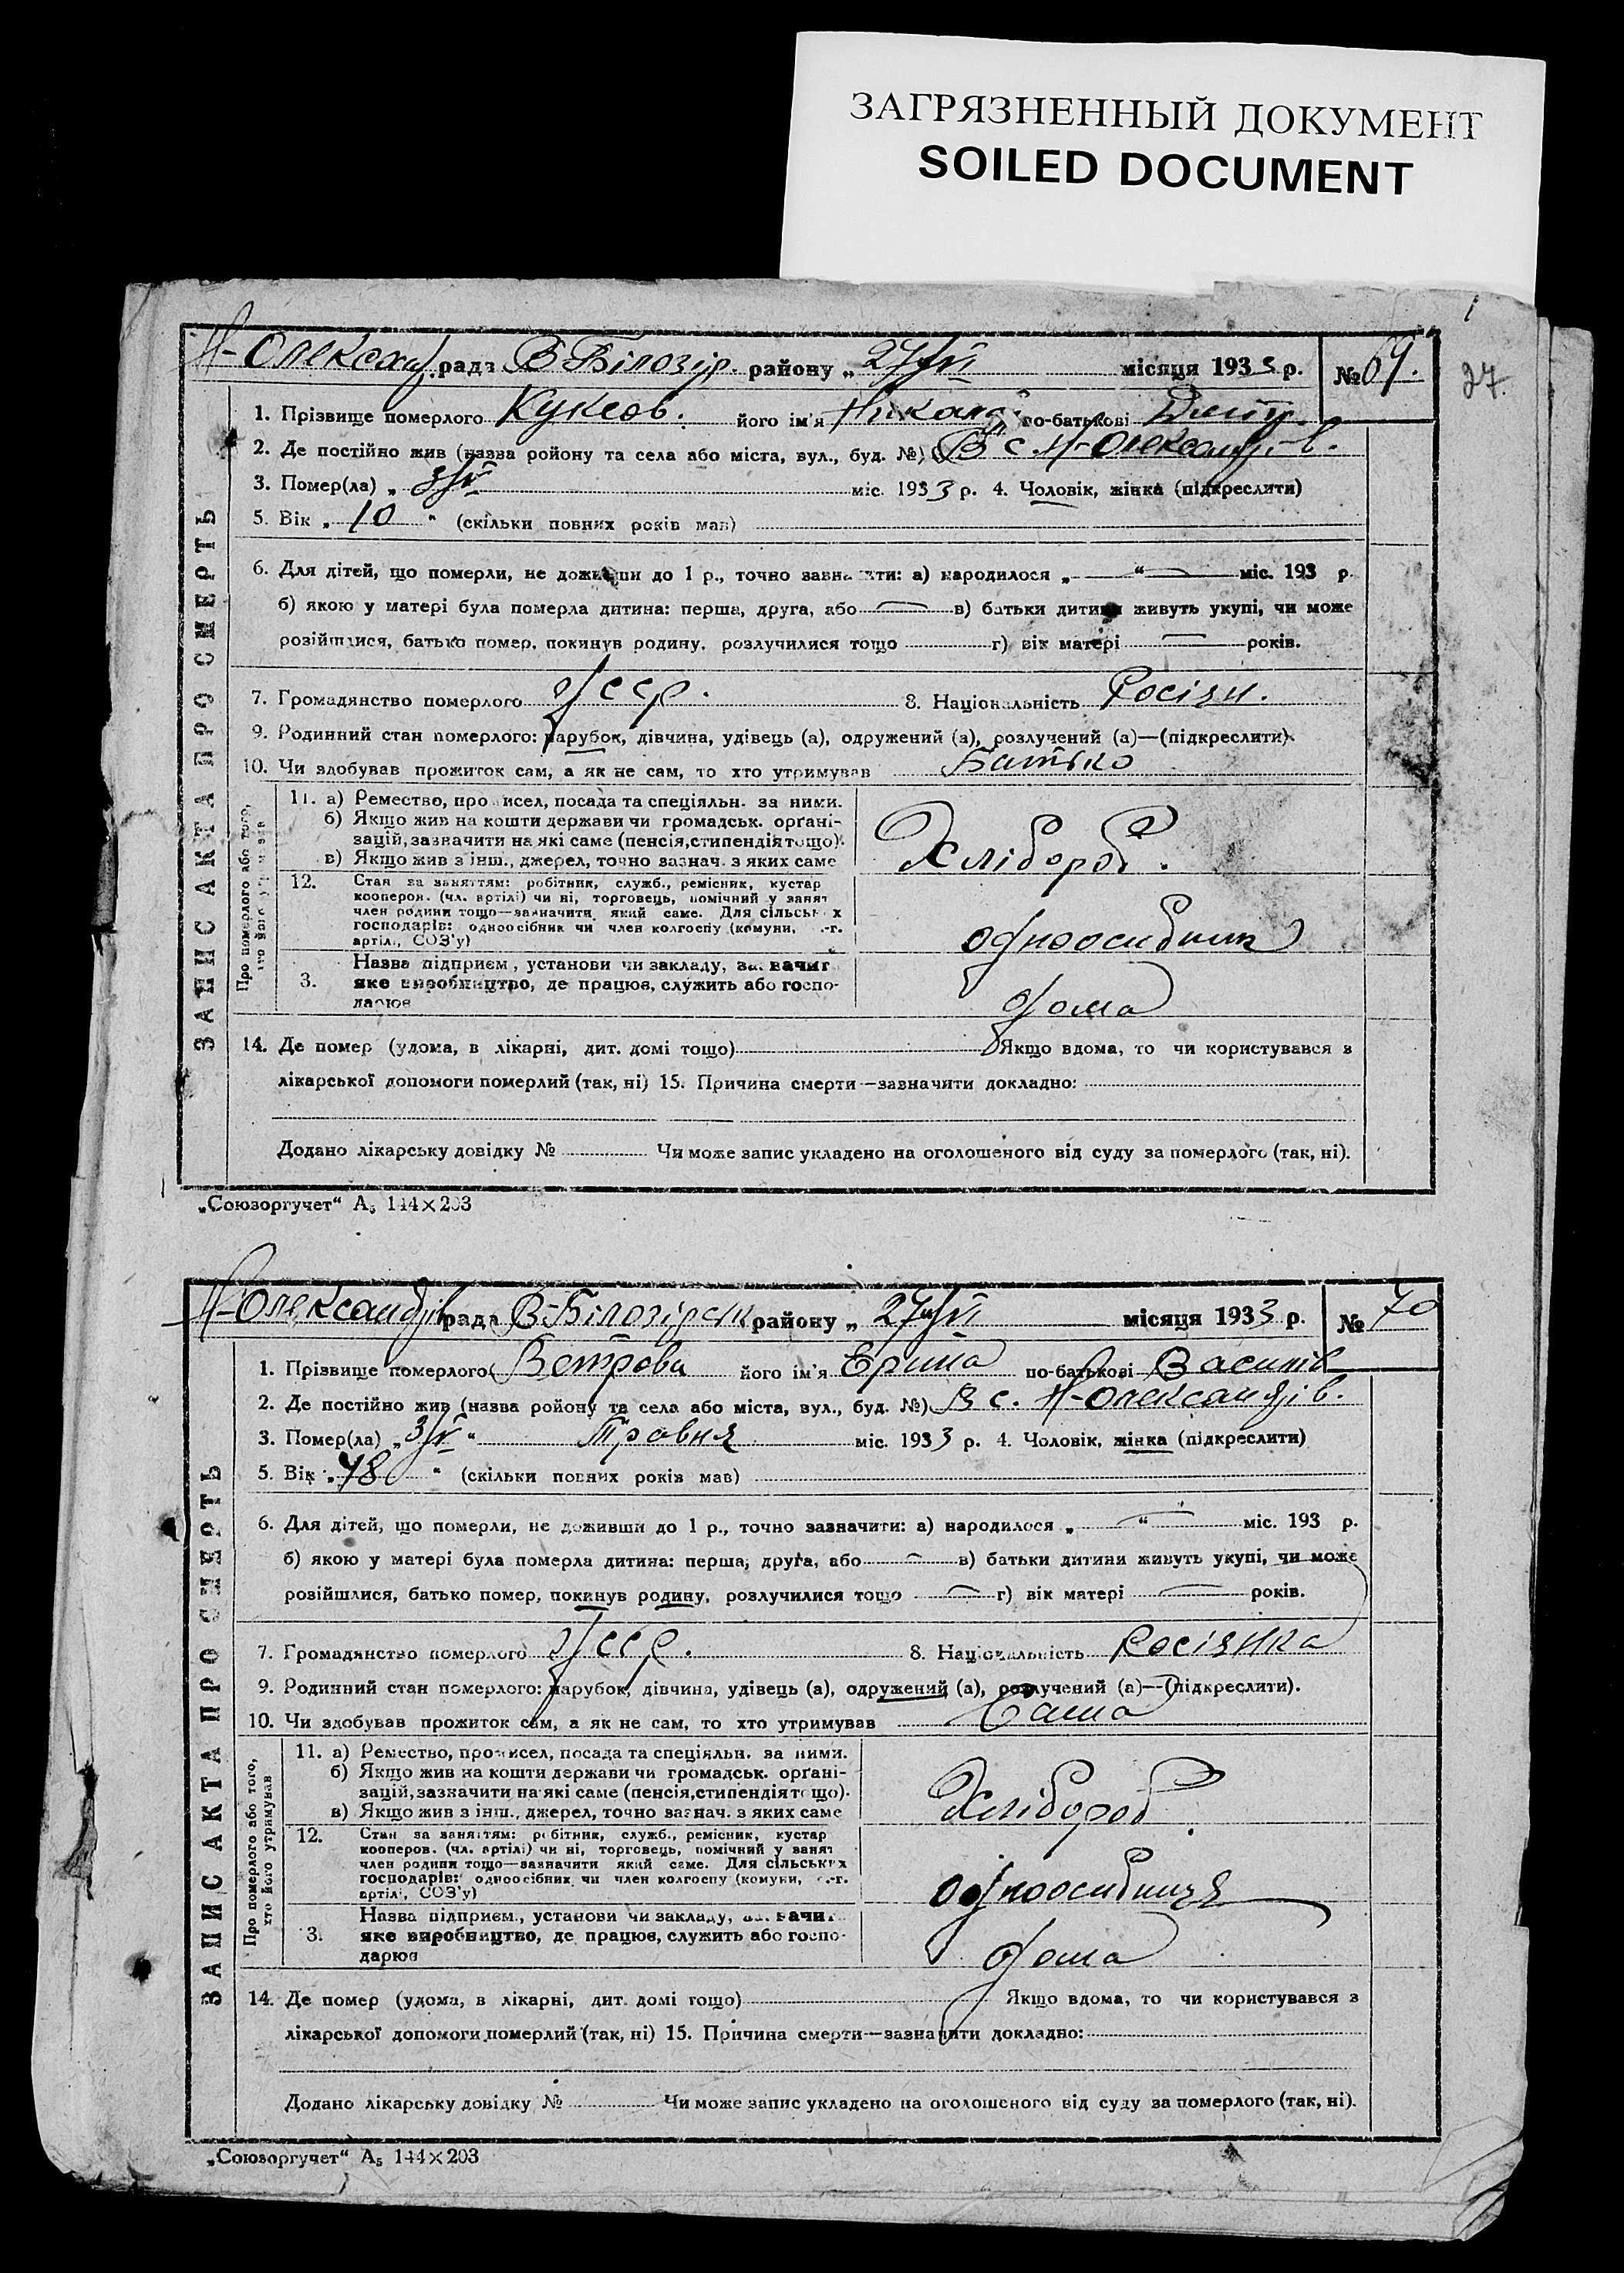 ЗАГРЯЗНЕННЫЙ ДОКУМЕНТ
SOILED DOCUMENT
27.
Н-Олександ. рада В-Білозір. району „ 27/VI місяця 1933 р. № 69.
1. Прізвище померлого Куксов. його ім'я по-батькові Дмитр.
2. Де постійно жив (назва ройону та села або міста, вул., буд. №) В с. Н-Олександрів.
3. Помер(ла) „ 3/V міс. 1933 р. 4. Чоловік, жінка (підкреслити)
5. Вік „ 10 “ (скільки повних років мав)
6. Для дітей, що померли, не доживши до 1 р., точно зазначити: а) народилося „ — “ — міс. 193 р.
б) якою у матері була померла дитина: перша, друга, або — в) батьки дитини живуть укупі, чи може
розійшлися, батько помер, покинув родину, розлучилися тощо г) вік матері — років.
7. Громадянство померлого УССР. 8. Національність Росіян.
9. Родинний стан померлого: парубок, дівчина, удівець (а), одружений (а), розлучений (а)—(підкреслити).
10. Чи здобував прожиток сам, а як не сам, то хто утримував Батько
ЗАПИС АКТА ПРО СМЕРТЬ
Про померлого або того,
хто його утримував
11. а) Ремество, промисел, посада та спеціяльн. за ними.
б) Якщо жив на кошти держави чи громадськ. орґані-
зацій, зазначити на які саме (пенсія, стипендія тощо).
в) Якщо жив з інш., джерел, точно зазнач. з яких саме
Хлібороб.
12. Стан за заняттям: робітник, служб., ремісник, кустар
кооперов. (чл. артілі) чи ні, торговець, помічний у занят
член родини тощо—зазначити який саме. Для сільських
господарів: одноосібник чи член колгоспу (комуни, с.-г.
артілі, СОЗ'у)
одноосибник
3. Назва підприєм., установи чи закладу, зазначит
яке виробництво, де працює, служить або госпо-
дарює
дома
14. Де помер (удома, в лікарні, дит. домі тощо) Якщо вдома, то чи користувався з
лікарської допомоги померлий (так, ні) 15. Причина смерти—зазначити докладно:
Додано лікарську довідку № Чи може запис укладено на оголошеного від суду за померлого (так, ні).
„Союзоргучет“ А5 144×203
Н-Олександрів рада В-Білозірськ району „ 27/VI місяця 1933 р. № 70
1. Прізвище померлого Ветрова його ім'я Ерина по-батькові Василів
2. Де постійно жив (назва ройону та села або міста, вул., буд. №) В с. Н-Олександрів.
3. Помер(ла) „ 3/V “ Травня міс. 1933 р. 4. Чоловік, жінка (підкреслити)
5. Вік „ 48 “ (скільки повних років мав)
6. Для дітей, що померли, не доживши до 1 р., точно зазначити: а) народилося „ — “ — міс. 193 р.
б) якою у матері була померла дитина: перша, друга, або — в) батьки дитини живуть укупі, чи може
розійшлися, батько помер, покинув родину, розлучилися тощо — г) вік матері — років.
7. Громадянство померлого УССР. 8. Національність Росіянка
9. Родинний стан померлого: парубок, дівчина, удівець (а), одружений (а), розлучений (а)—(підкреслити).
10. Чи здобував прожиток сам, а як не сам, то хто утримував Сама
ЗАПИС АКТА ПРО СМЕРТЬ
Про померлого або того,
хто його утримував
11. а) Ремество, промисел, посада та спеціяльн. за ними.
б) Якщо жив на кошти держави чи громадськ. орґані-
зацій, зазначити на які саме (пенсія, стипендія тощо).
в) Якщо жив з інш., джерел, точно зазнач. з яких саме
Хлібороб.
12. Стан за заняттям: робітник, служб., ремісник, кустар
кооперов. (чл. артілі) чи ні, торговець, помічний у занят
член родини тощо—зазначити який саме. Для сільських
господарів: одноосібник чи член колгоспу (комуни, с.-г.
артілі, СОЗ'у)
одноосибниця
3. Назва підприєм., установи чи закладу, зазначит
яке виробництво, де працює, служить або госпо-
дарює
дома
14. Де помер (удома, в лікарні, дит. домі тощо) Якщо вдома, то чи користувався з
лікарської допомоги померлий (так, ні) 15. Причина смерти—зазначити докладно:
Додано лікарську довідку № Чи може запис укладено на оголошеного від суду за померлого (так, ні).
„Союзоргучет“ А5 144×203